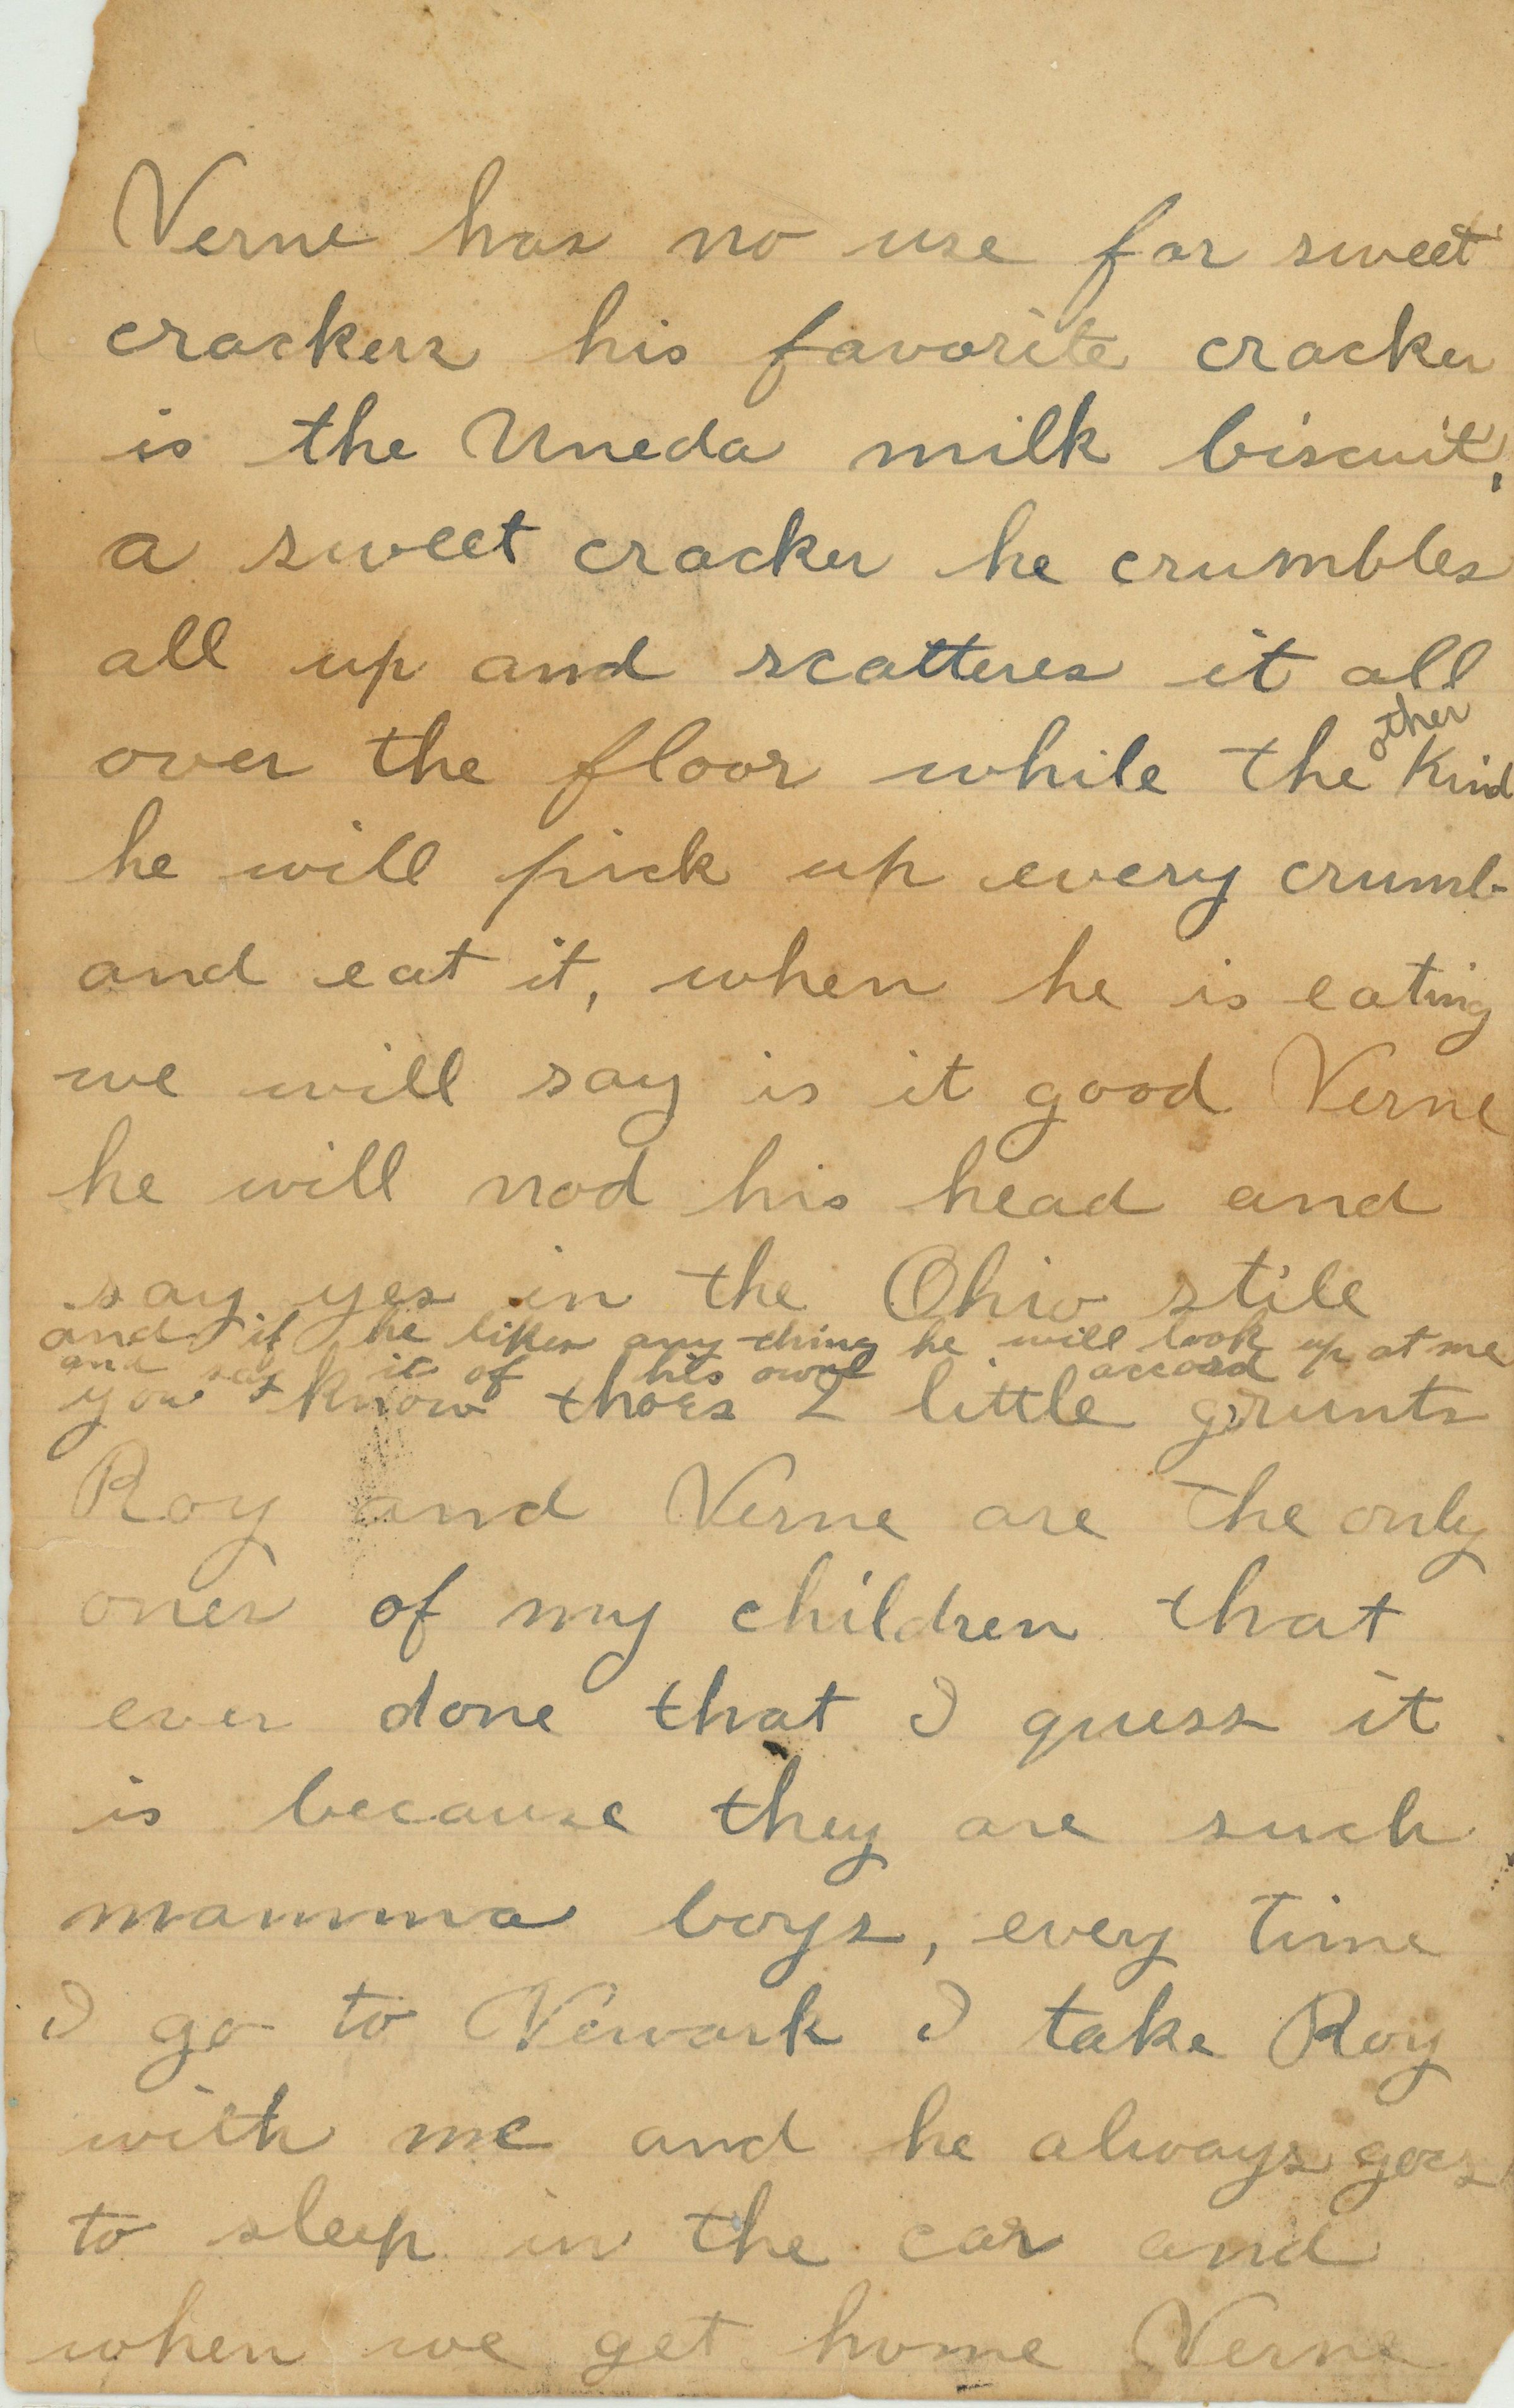 Verne has no use for sweet
crackers his favorite cracker
is the Uneda milk biscuit,
a sweet cracker he crumbles
all up and scatteres it all
other
over the floor while the kind
he will pick up every crumb
and eat it, when he is eating
we will say is it good Verne
he will nod his head and
say yes in the Ohio stile
and if he likes any thing he will look up at me
and say it of his own accord
you know thoes 2 little grunts
Roy and Verne are the only
ones of my children that
ever done that I guess it
is because they are such
mamma boys, every time
I go to Newark I take Roy
with me and he always goes
to sleep in the car and
when we get home Verne